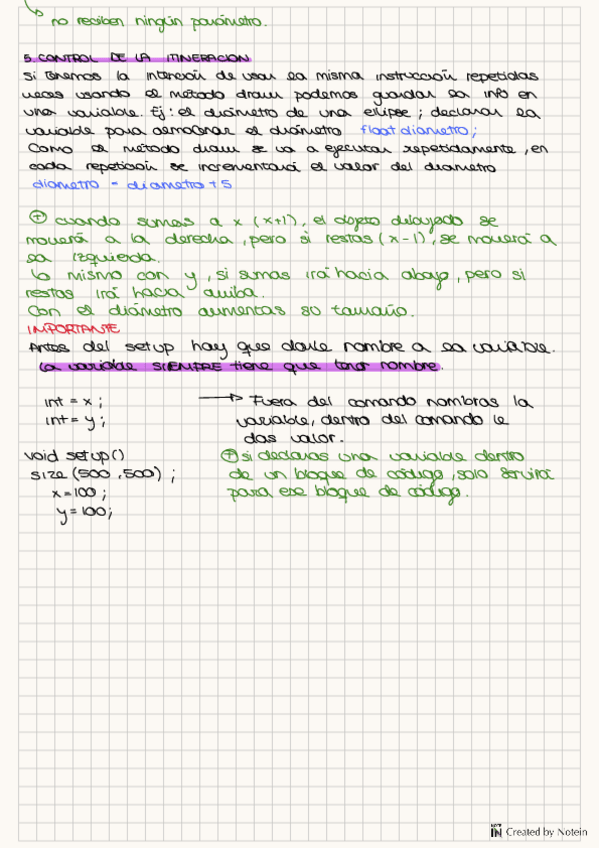 no reciben ningún parámetro.
5. CONTROL DE LA ITINERACION
Si tenemos la intención de usar la misma instrucción repetidas
veces usando el método draw podemos guardar la info en
una variable. Ej: el diámetro de una ellipse; declarar la
variable para almacenar el diámetro float diametro;
Como el método draw se va a ejecutar repetidamente, en
cada repetición se incrementará el valor del diametro
diametro = diametro + 5
+ cuando sumas a x (x+1), el objeto dibujado se
moverá a la derecha, pero si restas (x-1), se moverá a
la izquierda.
Lo mismo con y, si sumas irá hacia abajo, pero si
restas irá hacia arriba.
Con el diámetro aumentas su tamaño.
IMPORTANTE
Antes del setup hay que darle nombre a la variable.
La variable SIEMPRE tiene que tener nombre.
int = x ; → Fuera del comando nombras la
int = y ; variable, dentro del comando le
das valor.
void setup() + si declaras una variable dentro
size (500,500) ; de un bloque de código, solo servirá
x = 100 ; para ese bloque de código.
y = 100;
NOTE IN Created by Notein